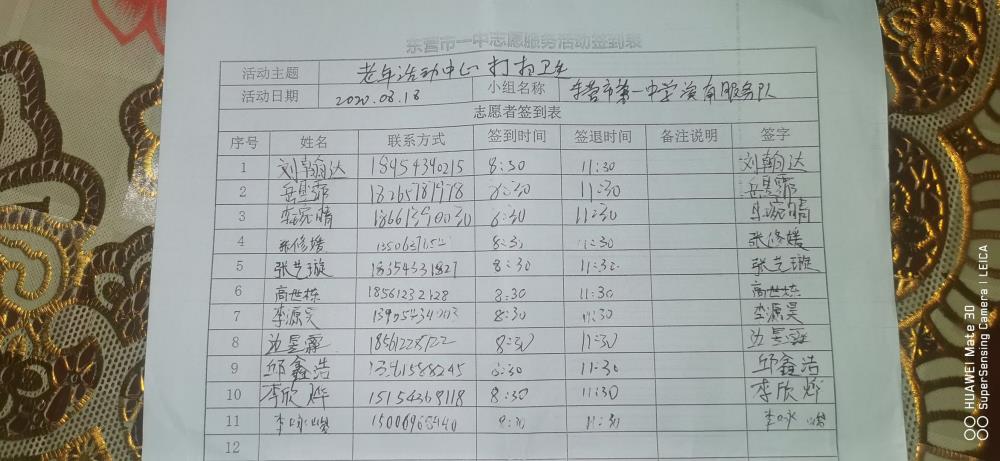 东营市一中志愿服务活动签到表
活动主题 老年活动中心打扫卫生
活动日期 2020.08.18 小组名称 东营市第一中学 服务队
志愿者签到表
序号 姓名 联系方式 签到时间 签退时间 备注说明 签字
1 刘翰达 18454340215 8:30 11:30 刘翰达
2 8:30 11:30
3 李宛晴 8:30 11:30 李宛晴
4 张修媛 8:30 11:30 张修媛
5 张艺璇 18354331827 8:30 11:30 张艺璇
6 高世栋 18561232128 8:30 11:30 高世栋
7 李源昊 8:30 11:30 李源昊
8 8:30 11:30
9 邱鑫浩 8:30 11:30 邱鑫浩
10 李欣烨 15154368118 8:30 11:30 李欣烨
11 8:30 11:30
12
HUAWEI Mate 30
SuperSensing Camera | LEICA